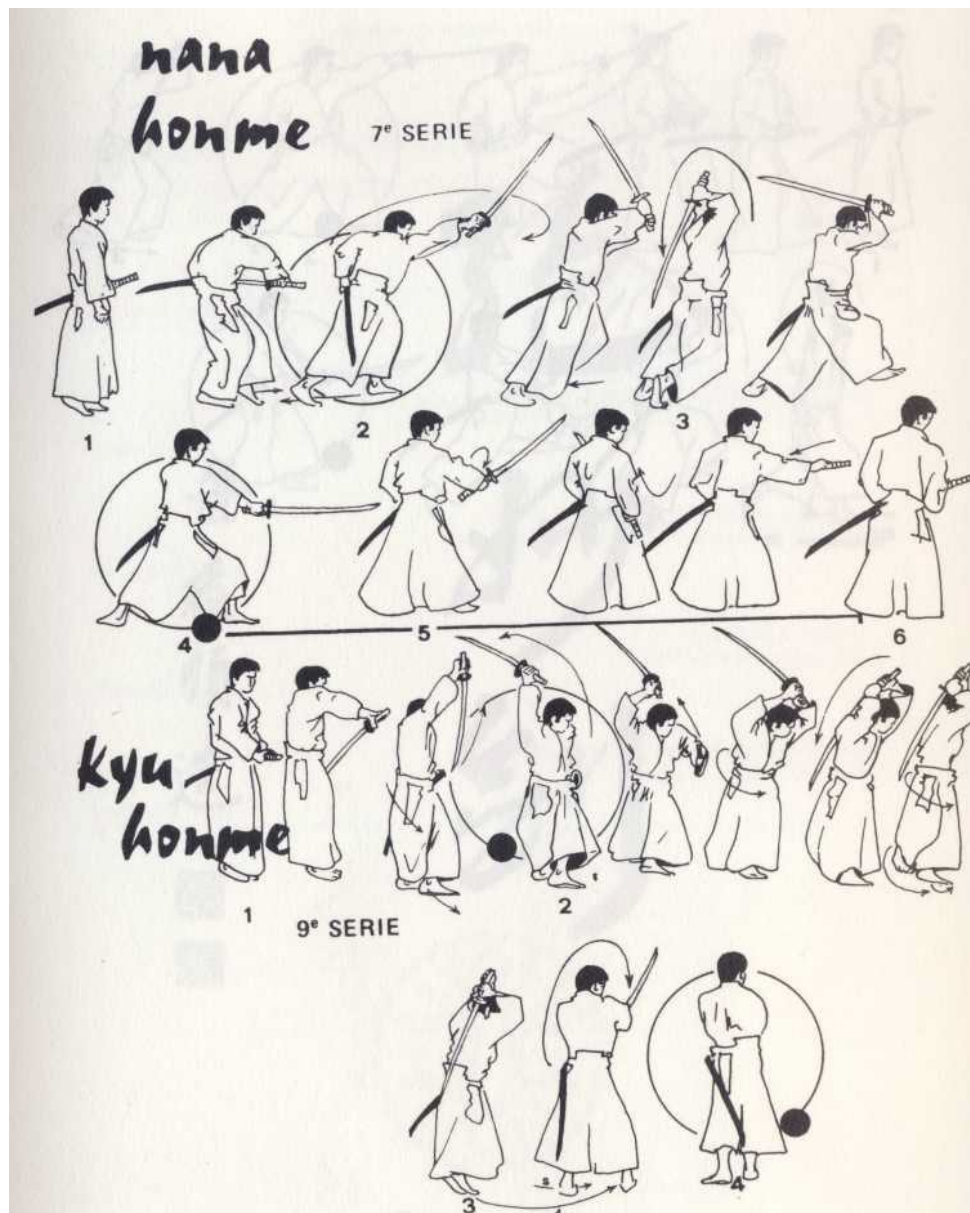 nana
honme 7e SERIE
1 2 3
4 5 6
kyu
honme
1 2
9e SERIE
s
3 4